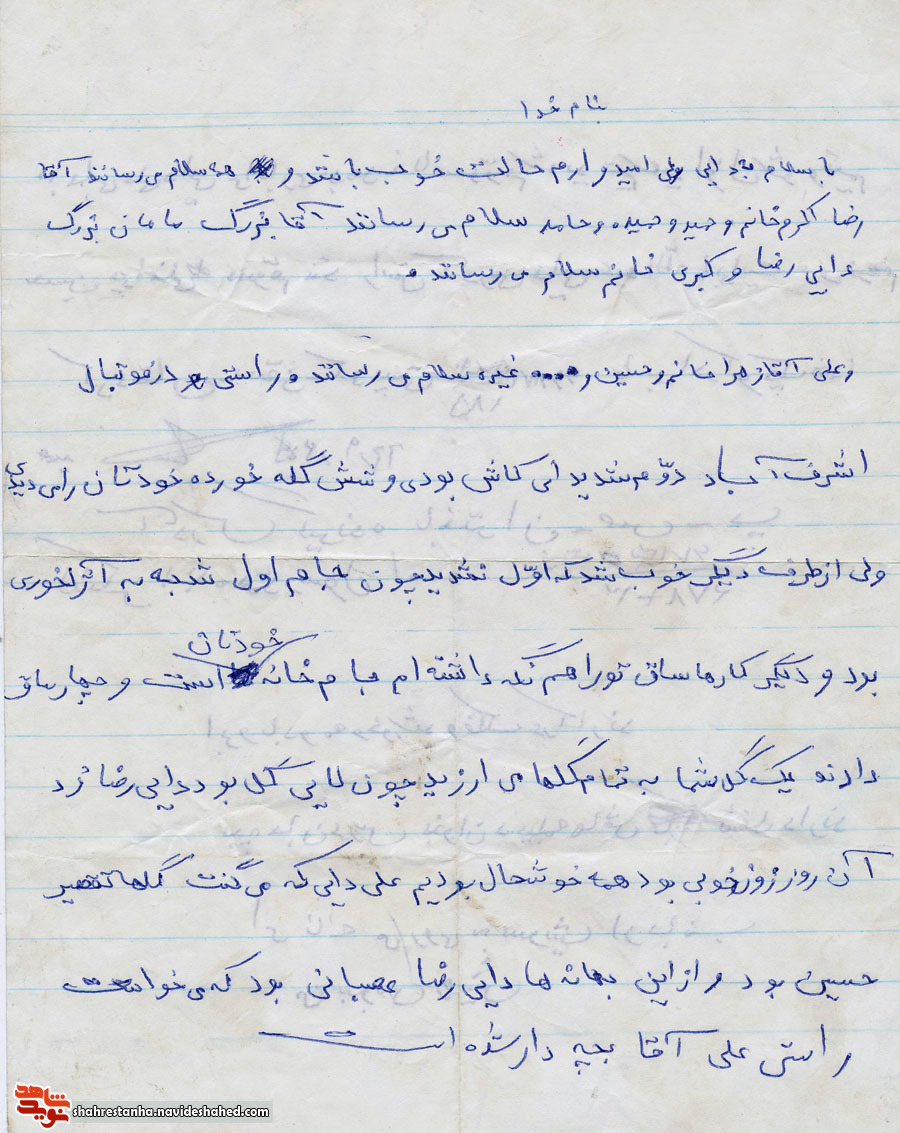 بنام خدا
با سلام به دایی علی امیدوارم حالت خوب باشد و همه سلام می رسانند آقا
رضا اکرم خانم وحید و حمیده و حامد سلام می رسانند آقا بزرگ مامان بزرگ
دایی رضا و کبری خانم سلام می رسانند
و علی آقا زهرا خانم و حسین و .... غیره سلام می رسانند و راستی در فوتبال
اشرف آباد دوّم شدید ای کاش بودی و شش گله خورده خودتان را می دیدی
ولی از طرف دیگر خوب شد که اوّل نشدید چون جام اول شبیه به آشغالخوری
بود و دیگر کارها ساق تو را هم نگه داشته ام جا م خانه خودتان است و چهار ساق
دارند یک گل شما به تمام گلها می ارزید چون لایی گل بود دایی رضا زد
آن روز روز خوبی بود همه خوشحال بودیم علی دایی که می گفت گلها تقصیر
حسین بود و از این بهانه ها دایی رضا عصبانی بود که می خواست
راستی علی آقا بچه دار شده است
شاهد
نوید
shahrestanha.navideshahed.com